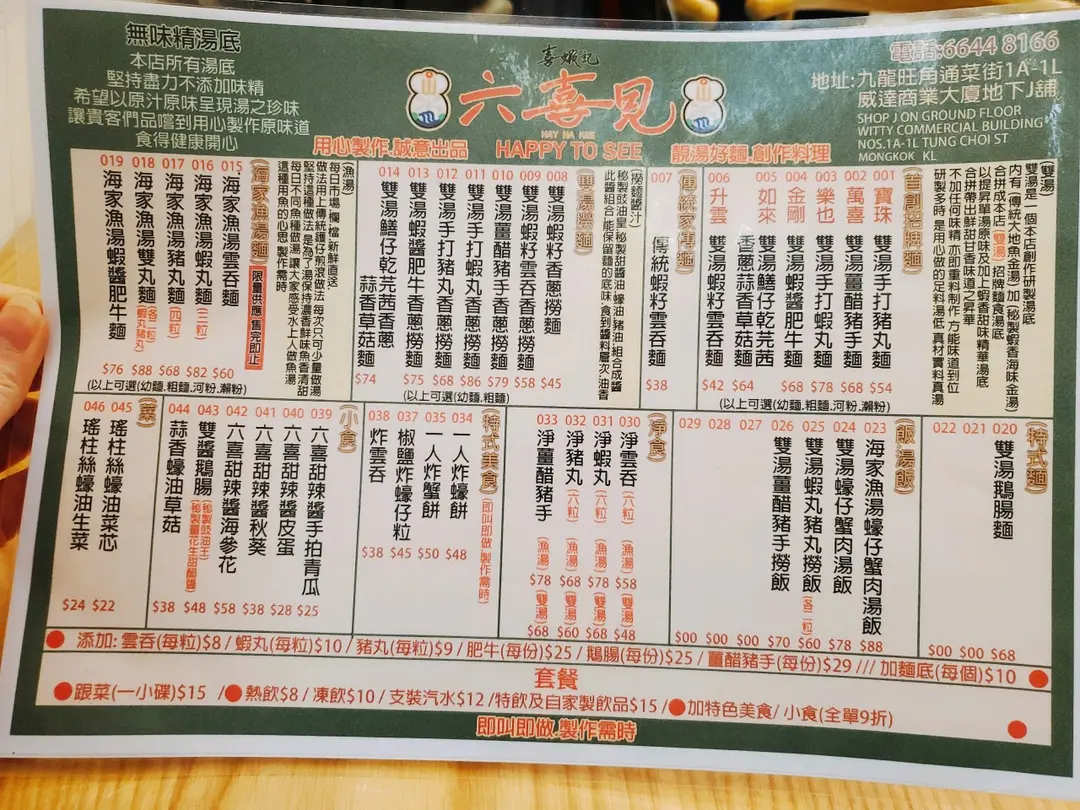 無味精湯底
本店所有湯底
堅持盡力不添加味精
希望以原汁原味呈現湯之珍味
讓貴客們品嚐到用心製作原味道
食得健康開心
喜蝦丸
六喜見
HAY HA KEE
HAPPY TO SEE
用心製作.誠意出品
靚湯好麵.創作料理
電話:6644 8166
地址:九龍旺角通菜街1A-1L
威達商業大廈地下J舖
SHOP J ON GROUND FLOOR
WITTY COMMERCIAL BUILDING
NOS.1A-1L TUNG CHOI ST
MONGKOK KL
(雙湯)
雙湯是一個本店創作研製湯底
內有(傳統大地魚金湯)加(秘製蝦香海味金湯)
合拼成本店(雙湯)招牌麵食湯底
以提昇單湯原味及加上蝦香甜味精華湯底
合拼帶出鮮甜甘香味道之昇華
不加任何味精,亦即重料制作,方能味道到位
研製多時,是用心做的足料湯低,真材實料真湯
首創招牌麵
001 寶珠 雙湯手打豬丸麵 $54
002 萬喜 雙湯薑醋豬手麵 $68
003 樂也 雙湯手打蝦丸麵 $78
004 金剛 雙湯蝦醬肥牛麵 $68
005 如來 雙湯鱔仔乾芫茜
香蔥蒜香草菇麵 $64
006 升雲 雙湯蝦籽雲吞麵 $42
(以上可選(幼麵.粗麵.河粉.瀨粉)
傳統家傳麵
007 傳統蝦籽雲吞麵 $38
雙湯撈麵
(撈麵醬汁)
秘製豉油皇 秘製甜醬油 蠔油 豬油 組合成醬
此醬組合,能保留麵的底味,食到醬料層次油香
008 雙湯蝦籽香蔥撈麵 $45
009 雙湯蝦籽雲吞香蔥撈麵 $58
010 雙湯薑醋豬手香蔥撈麵 $79
011 雙湯手打蝦丸香蔥撈麵 $86
012 雙湯手打豬丸香蔥撈麵 $68
013 雙湯蝦醬肥牛香蔥撈麵 $75
014 雙湯鱔仔乾芫茜香蔥
蒜香草菇麵 $74
(以上可選(幼麵.粗麵)
(漁湯)
每日市場,欄檔,新鮮直送
做法用上傳統鑊仔煎滾做法,每次只可少量做湯
堅持這種做法,是為了湯保持濃香鮮味魚香清甜
每日不同魚種做湯,讓大家感受水上人做魚湯
這種用魚的心思,製作需時
海家漁湯麵
限量供應,售完即止
015 海家漁湯雲吞麵 $60
016 海家漁湯蝦丸麵(三粒) $82
017 海家漁湯豬丸麵(四粒) $68
018 海家漁湯雙丸麵(各二粒)(蝦丸豬丸) $88
019 海家漁湯蝦醬肥牛麵 $76
(以上可選(幼麵.粗麵.河粉.瀨粉)
特式麵
020 雙湯鵝腸麵 $68
021 $00
022 $00
飯.湯飯
023 海家漁湯蠔仔蟹肉湯飯 $88
024 雙湯蠔仔蟹肉湯飯 $78
025 雙湯蝦丸豬丸撈飯(各二粒) $60
026 雙湯薑醋豬手撈飯 $70
027 $00
028 $00
029 $00
(淨食)
030 淨雲吞(六粒) (漁湯) $58 (雙湯) $48
031 淨蝦丸(六粒) (漁湯) $78 (雙湯) $68
032 淨豬丸(六粒) (漁湯) $68 (雙湯) $60
033 淨薑醋豬手 (漁湯) $78 (雙湯) $68
特式美食
(即叫即做 製作需時)
034 一人炸蠔餅 $48
035 一人炸蟹餅 $50
037 椒鹽炸蠔仔粒 $45
038 炸雲吞 $38
小食
039 六喜甜辣醬手拍青瓜 $25
040 六喜甜辣醬皮蛋 $28
041 六喜甜辣醬秋葵 $38
042 六喜甜辣醬海參花 $58
043 雙醬鵝腸(秘製豉油王)(秘製薑花生甜醋醬) $48
044 蒜香蠔油草菇 $38
菜
045 瑤柱絲蠔油菜芯 $22
046 瑤柱絲蠔油生菜 $24
添加: 雲吞(每粒)$8 / 蝦丸(每粒)$10 / 豬丸(每粒)$9 / 肥牛(每份)$25 / 鵝腸(每份)$25 / 薑醋豬手(每份)$29 /// 加麵底(每個)$10
套餐
跟菜(一小碟)$15 / 熱飲$8 / 凍飲$10 / 支裝汽水$12 /特飲及自家製飲品$15 / 加特色美食/ 小食(全單9折)
即叫即做.製作需時